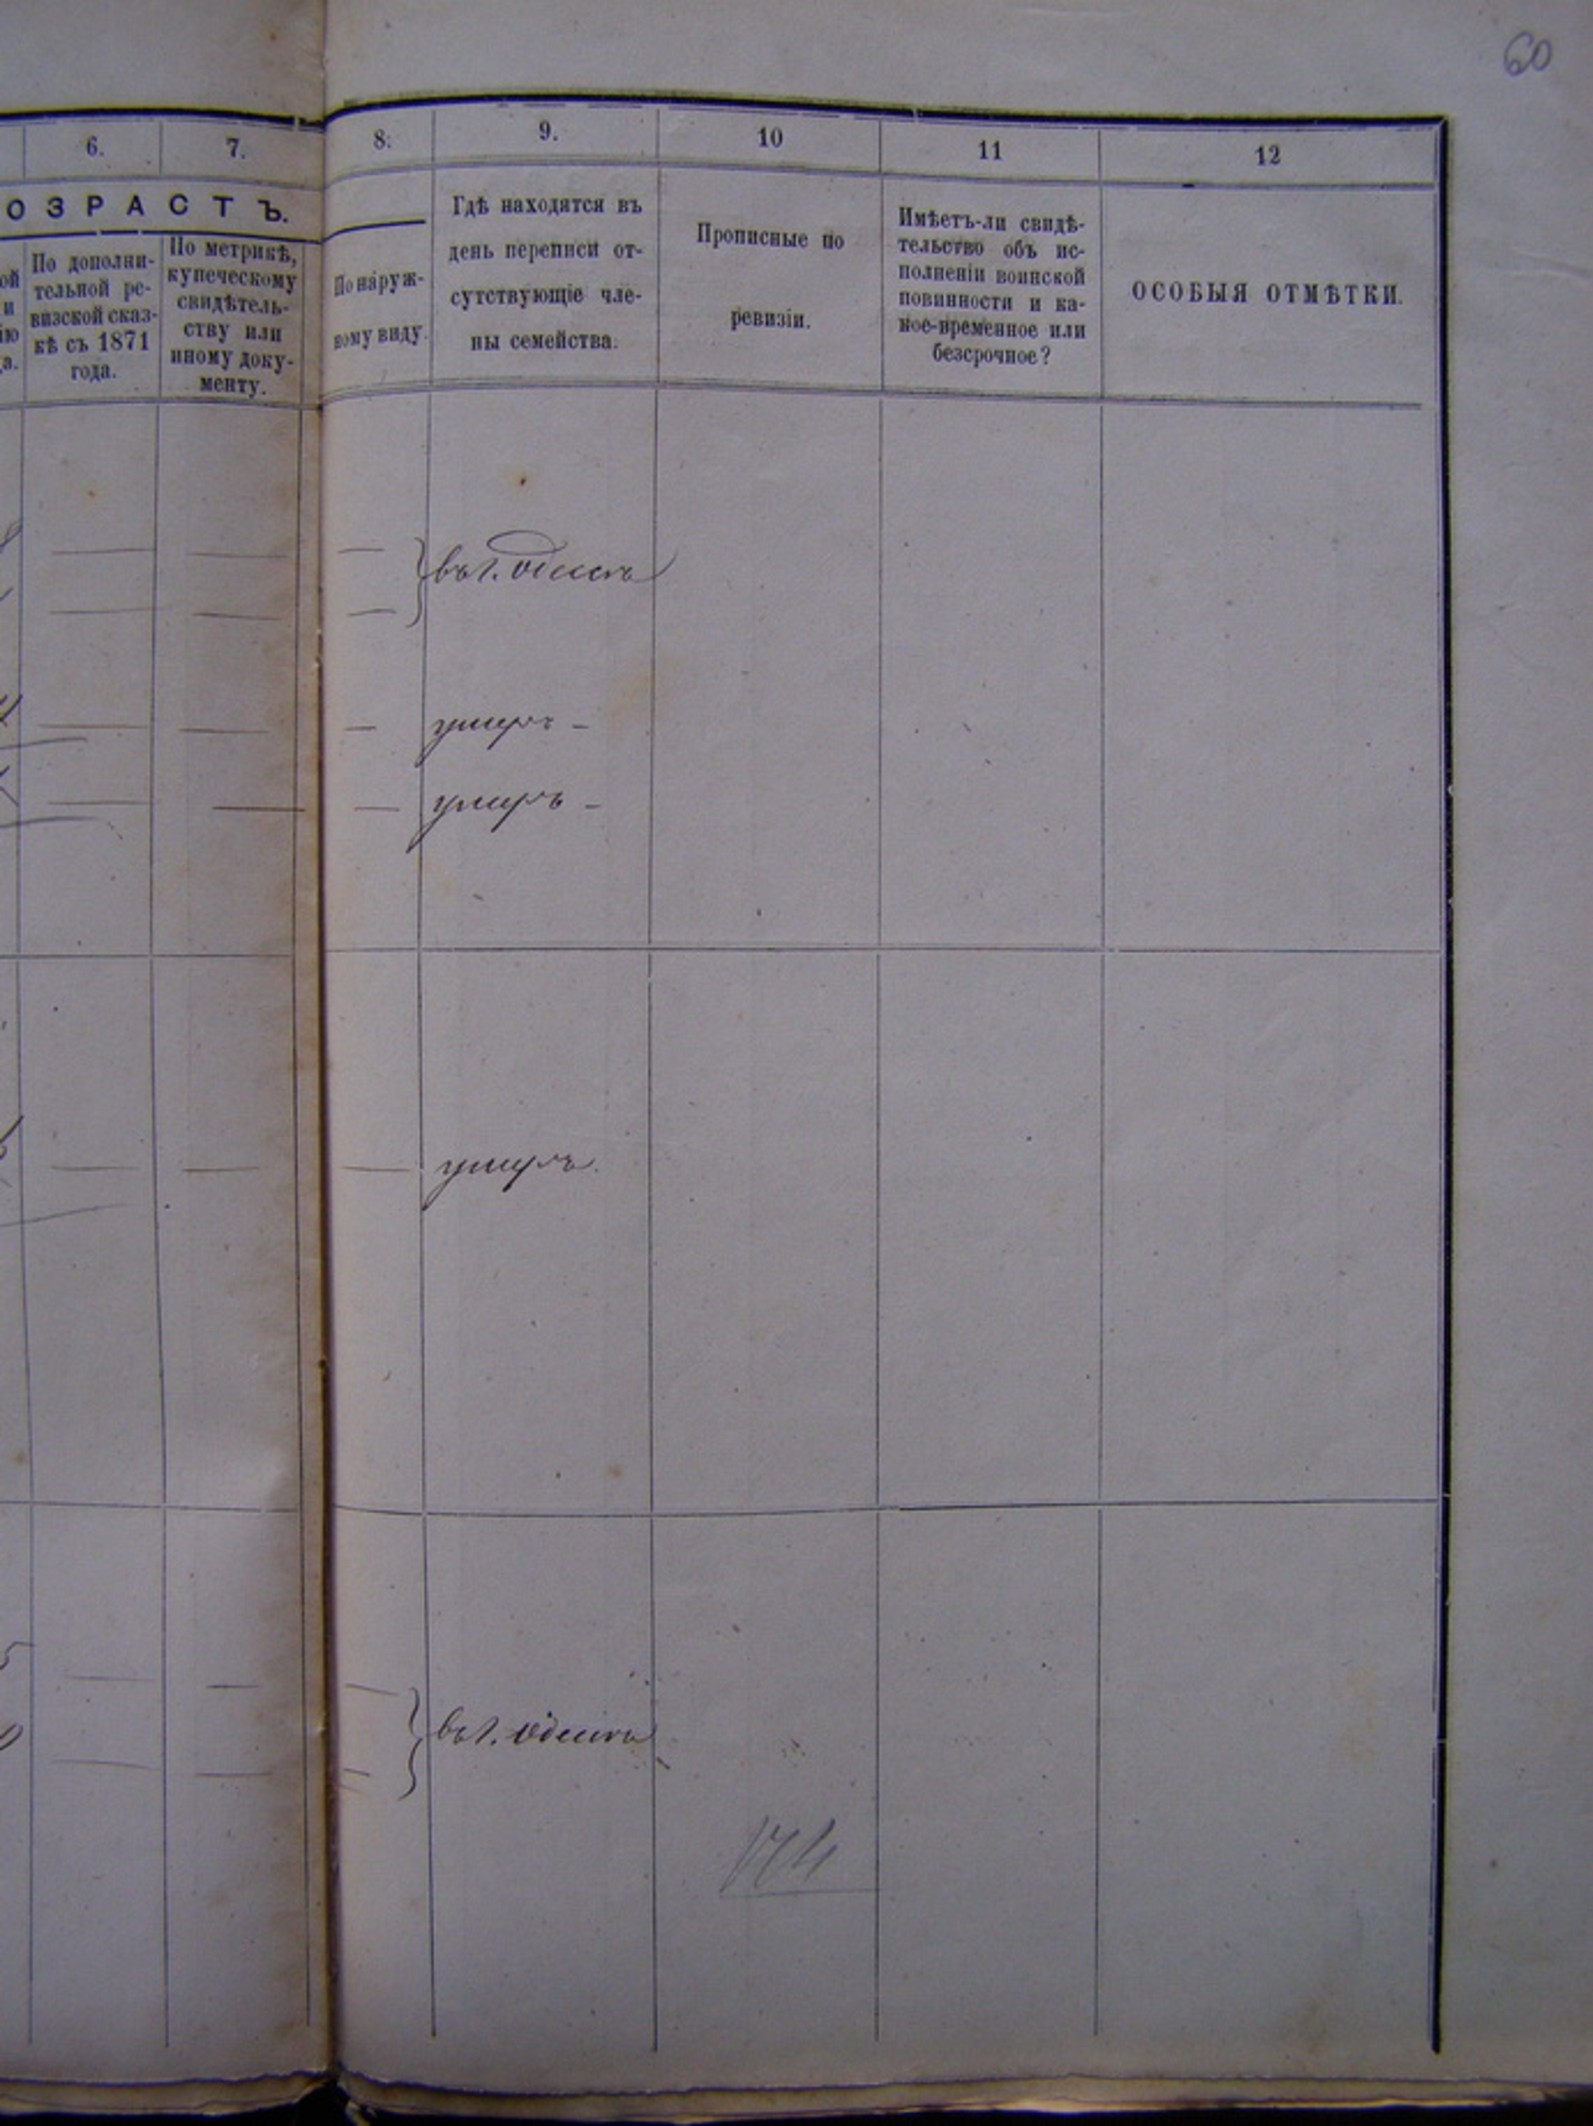 60
6.
7.
8.
9.
10
11
12
ОЗРАСТЪ.
По дополни-
тельной ре-
визской сказ-
кѣ съ 1871
года.
По метрикѣ,
купеческому
свидѣтель-
ству или
иному доку-
менту.
По наруж-
ному виду.
Гдѣ находятся въ
день переписи от-
сутствующіе чле-
ны семейства.
Прописные по
ревизіи.
Имѣетъ-ли свидѣ-
тельство объ ис-
полненіи воинской
повинности и ка-
кое-временное или
безсрочное?
ОСОБЫЯ ОТМѢТКИ.
въ г. Одессѣ
умеръ -
умеръ -
умеръ.
въ г. Одессѣ